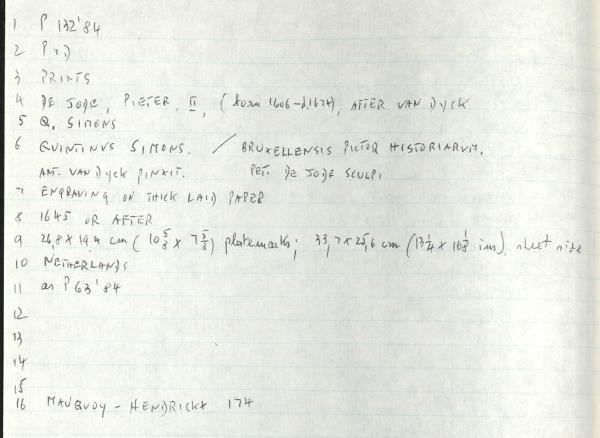 1 P 132'84
2 P+D
3 PRINTS
4 DE JODE, PIETER, II, (born 1606-d.1674), AFTER VAN DYCK
5 Q. SIMONS
6 QUINTINVS SIMONS. / BRUXELLENSIS PICTOR HISTORIARVM.
ANT. VAN DYCK PINXIT. PET. DE JODE SCULP.
7 ENGRAVING ON THICK LAID PAPER
8 1645 OR AFTER
9 26,8 x 19,4 cm (10 5/8 x 7 5/8) platemarks; 33,7 x 25,6 cm (13 1/4 x 10 1/8 ins), sheet size
10 NETHERLANDS
11 as P 63'84
12
13
14
15
16 MAUQUOY - HENDRICKX 174